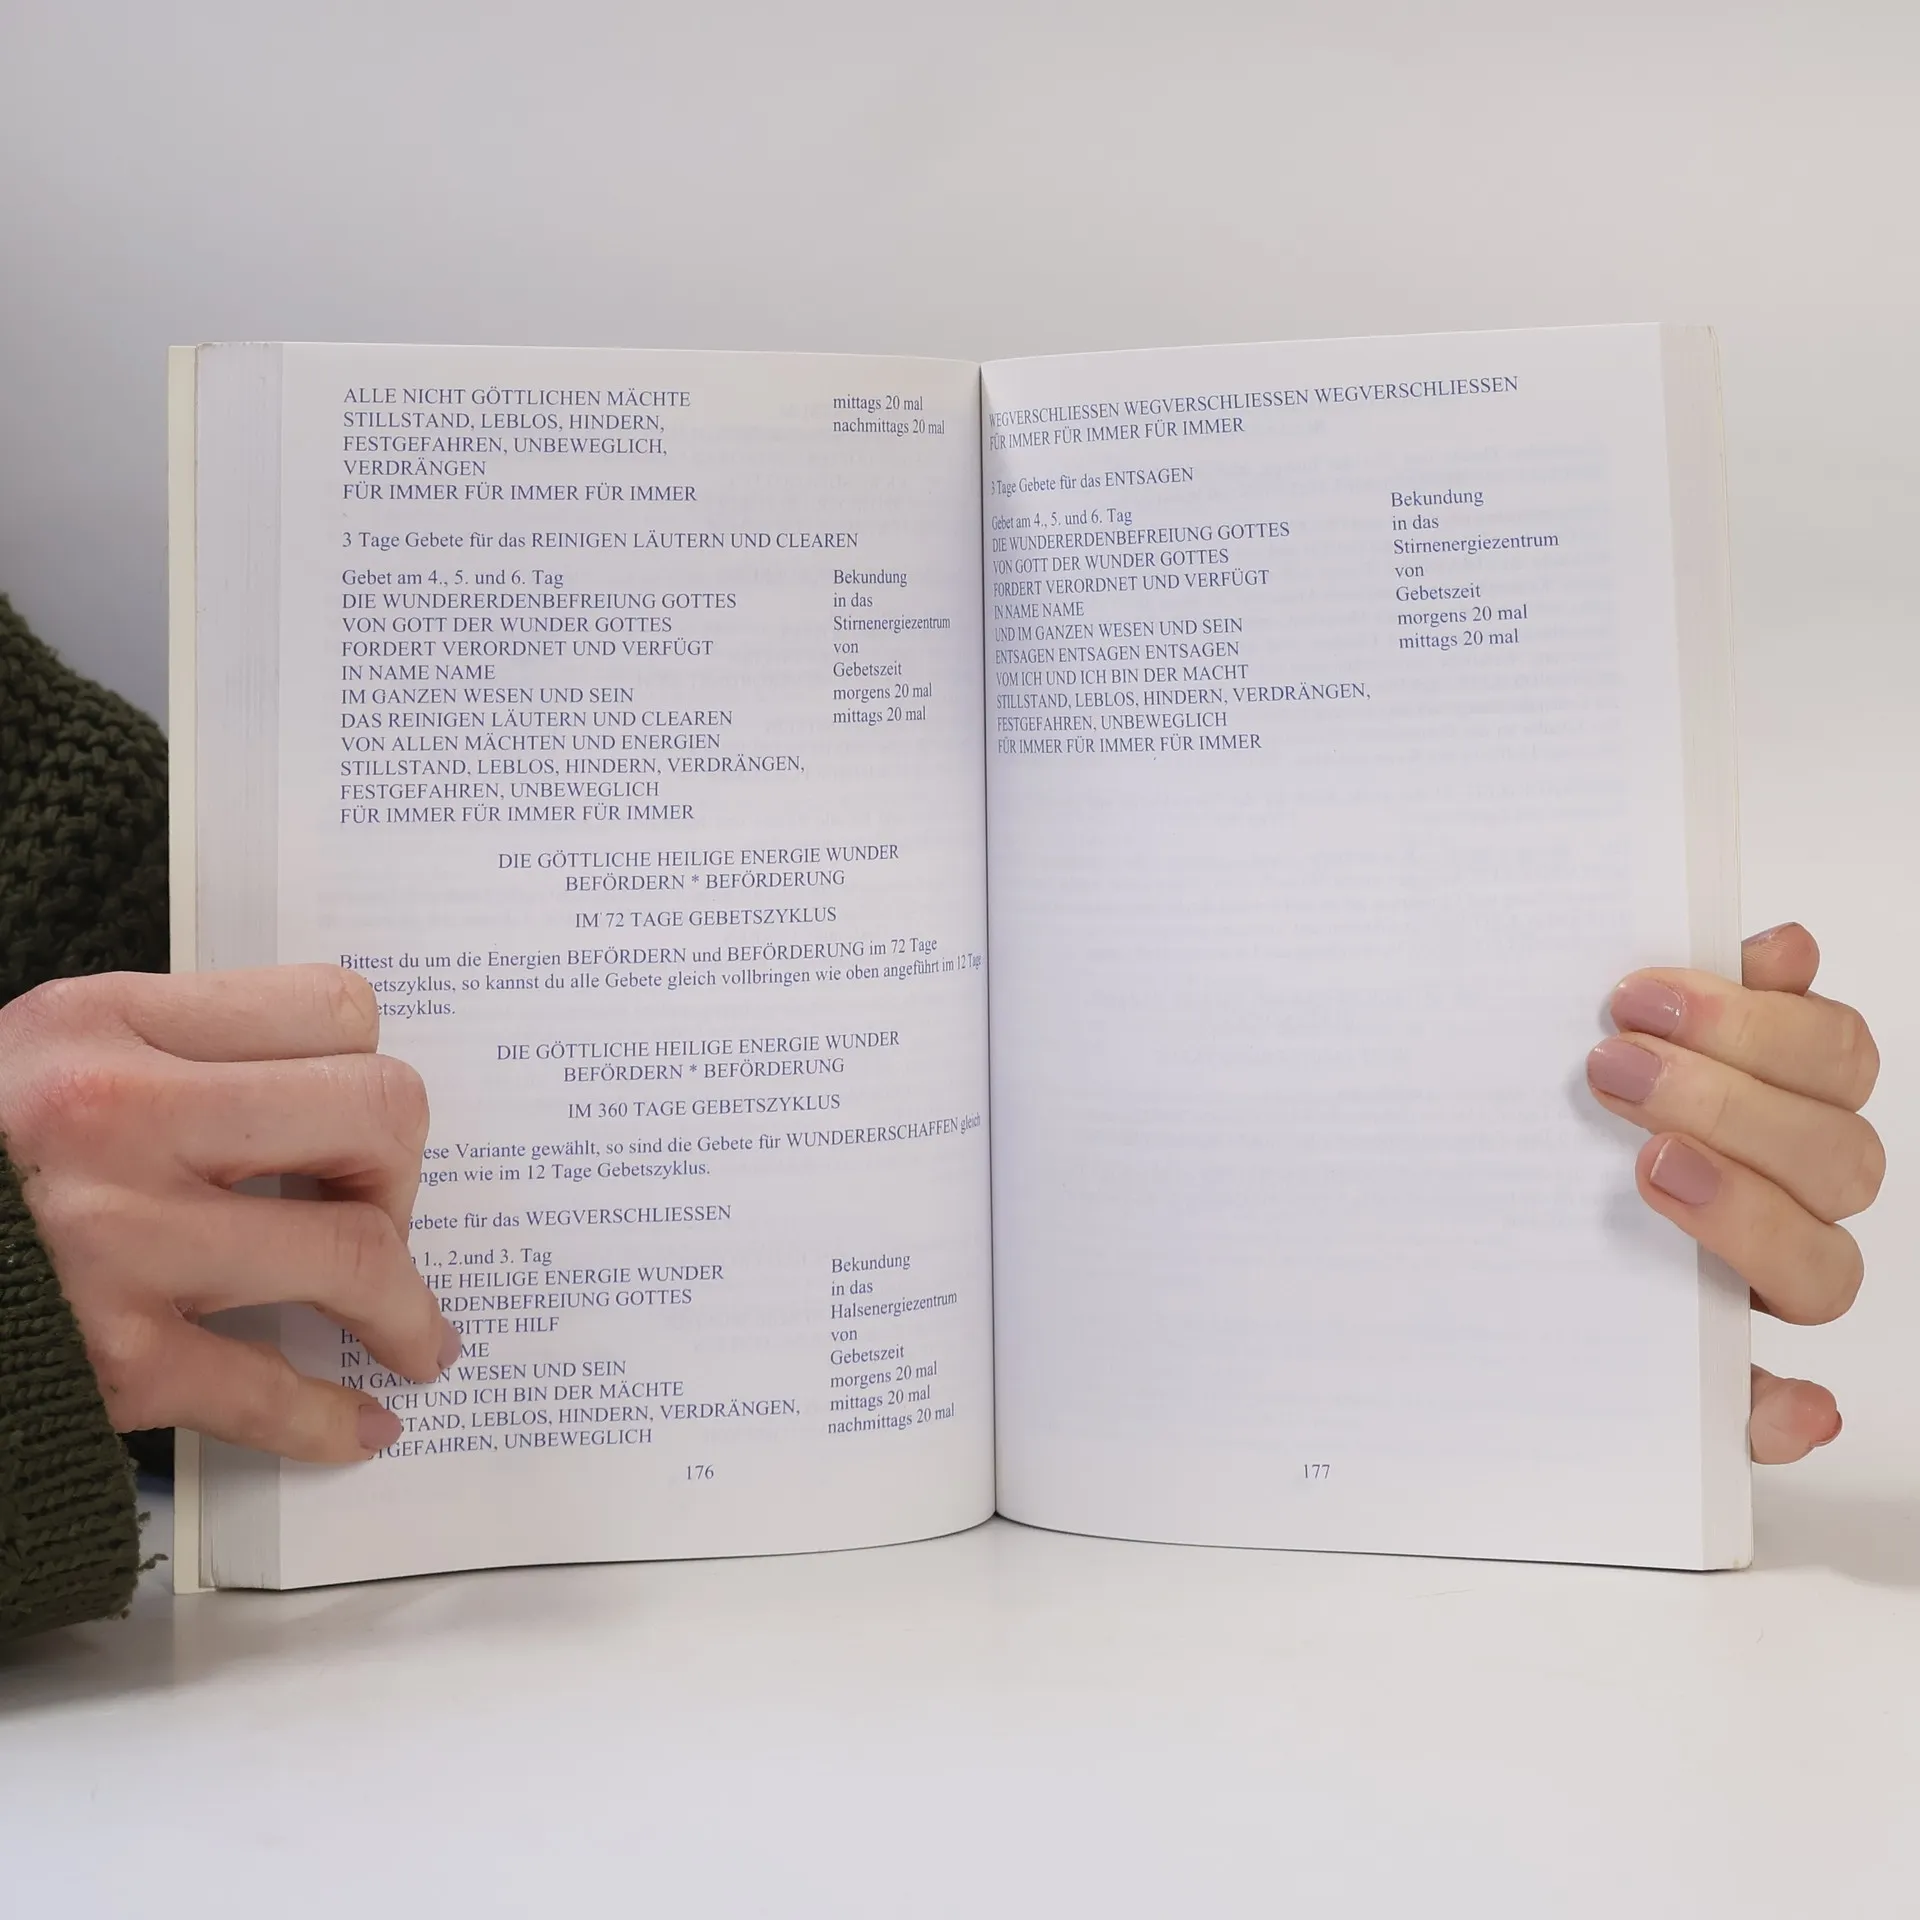 ALLE NICHT GÖTTLICHEN MÄCHTE
STILLSTAND, LEBLOS, HINDERN,
FESTGEFAHREN, UNBEWEGLICH,
VERDRÄNGEN
FÜR IMMER FÜR IMMER FÜR IMMER
mittags 20 mal
nachmittags 20 mal
3 Tage Gebete für das REINIGEN LÄUTERN UND CLEAREN
Gebet am 4., 5. und 6. Tag
DIE WUNDERERDENBEFREIUNG GOTTES
VON GOTT DER WUNDER GOTTES
FORDERT VERORDNET UND VERFÜGT
IN NAME NAME
IM GANZEN WESEN UND SEIN
DAS REINIGEN LÄUTERN UND CLEAREN
VON ALLEN MÄCHTEN UND ENERGIEN
STILLSTAND, LEBLOS, HINDERN, VERDRÄNGEN,
FESTGEFAHREN, UNBEWEGLICH
FÜR IMMER FÜR IMMER FÜR IMMER
Bekundung
in das
Stirnenergiezentrum
von
Gebetszeit
morgens 20 mal
mittags 20 mal
DIE GÖTTLICHE HEILIGE ENERGIE WUNDER
BEFÖRDERN * BEFÖRDERUNG
IM 72 TAGE GEBETSZYKLUS
Bittest du um die Energien BEFÖRDERN und BEFÖRDERUNG im 72 Tage
etszyklus, so kannst du alle Gebete gleich vollbringen wie oben angeführt im 12 Tage
etszyklus.
DIE GÖTTLICHE HEILIGE ENERGIE WUNDER
BEFÖRDERN * BEFÖRDERUNG
IM 360 TAGE GEBETSZYKLUS
ese Variante gewählt, so sind die Gebete für WUNDERERSCHAFFEN gleich
ngen wie im 12 Tage Gebetszyklus.
ebete für das WEGVERSCHLIESSEN
1., 2.und 3. Tag
HE HEILIGE ENERGIE WUNDER
RDENBEFREIUNG GOTTES
BITTE HILF
IN ME
IM GANZEN WESEN UND SEIN
ICH UND ICH BIN DER MÄCHTE
STAND, LEBLOS, HINDERN, VERDRÄNGEN,
GEFAHREN, UNBEWEGLICH
Bekundung
in das
Halsenergiezentrum
von
Gebetszeit
morgens 20 mal
mittags 20 mal
nachmittags 20 mal
176
WEGVERSCHLIESSEN WEGVERSCHLIESSEN WEGVERSCHLIESSEN
FÜR IMMER FÜR IMMER FÜR IMMER
3 Tage Gebete für das ENTSAGEN
Gebet am 4., 5. und 6. Tag
DIE WUNDERERDENBEFREIUNG GOTTES
VON GOTT DER WUNDER GOTTES
FORDERT VERORDNET UND VERFÜGT
IN NAME NAME
UND IM GANZEN WESEN UND SEIN
ENTSAGEN ENTSAGEN ENTSAGEN
VOM ICH UND ICH BIN DER MACHT
STILLSTAND, LEBLOS, HINDERN, VERDRÄNGEN,
FESTGEFAHREN, UNBEWEGLICH
FÜR IMMER FÜR IMMER FÜR IMMER
Bekundung
in das
Stirnenergiezentrum
von
Gebetszeit
morgens 20 mal
mittags 20 mal
177